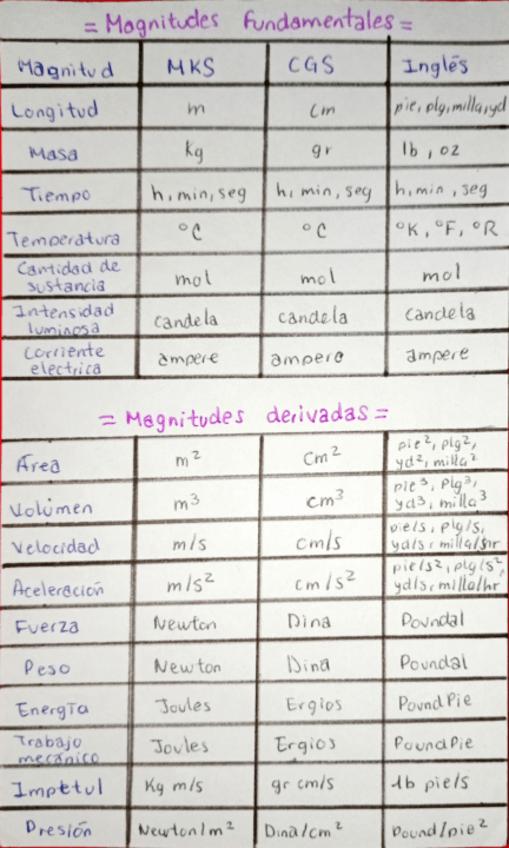 = Magnitudes Fundamentales =
Magnitud MKS CGS Inglés
Longitud m cm pie, plg, milla, yd
Masa kg gr lb, oz
Tiempo h, min, seg h, min, seg h, min, seg
Temperatura °C °C °K, °F, °R
Cantidad de
sustancia mol mol mol
Intensidad
luminosa candela candela candela
Corriente
electrica ampere ampere ampere
= Magnitudes derivadas =
Área m² cm² pie², plg²,
yd², milla²
Volúmen m³ cm³ pie³, plg³,
yd³, milla³
Velocidad m/s cm/s pie/s, plg/s,
yd/s, milla/hr
Aceleración m/s² cm/s² pie/s², plg/s²,
yd/s, milla/hr
Fuerza Newton Dina Poundal
Peso Newton Dina Poundal
Energía Joules Ergios PoundPie
Trabajo
mecánico Joules Ergios PoundPie
Kg m/s gr cm/s lb pie/s
Presión Newton/m² Dina/cm² Pound/pie²